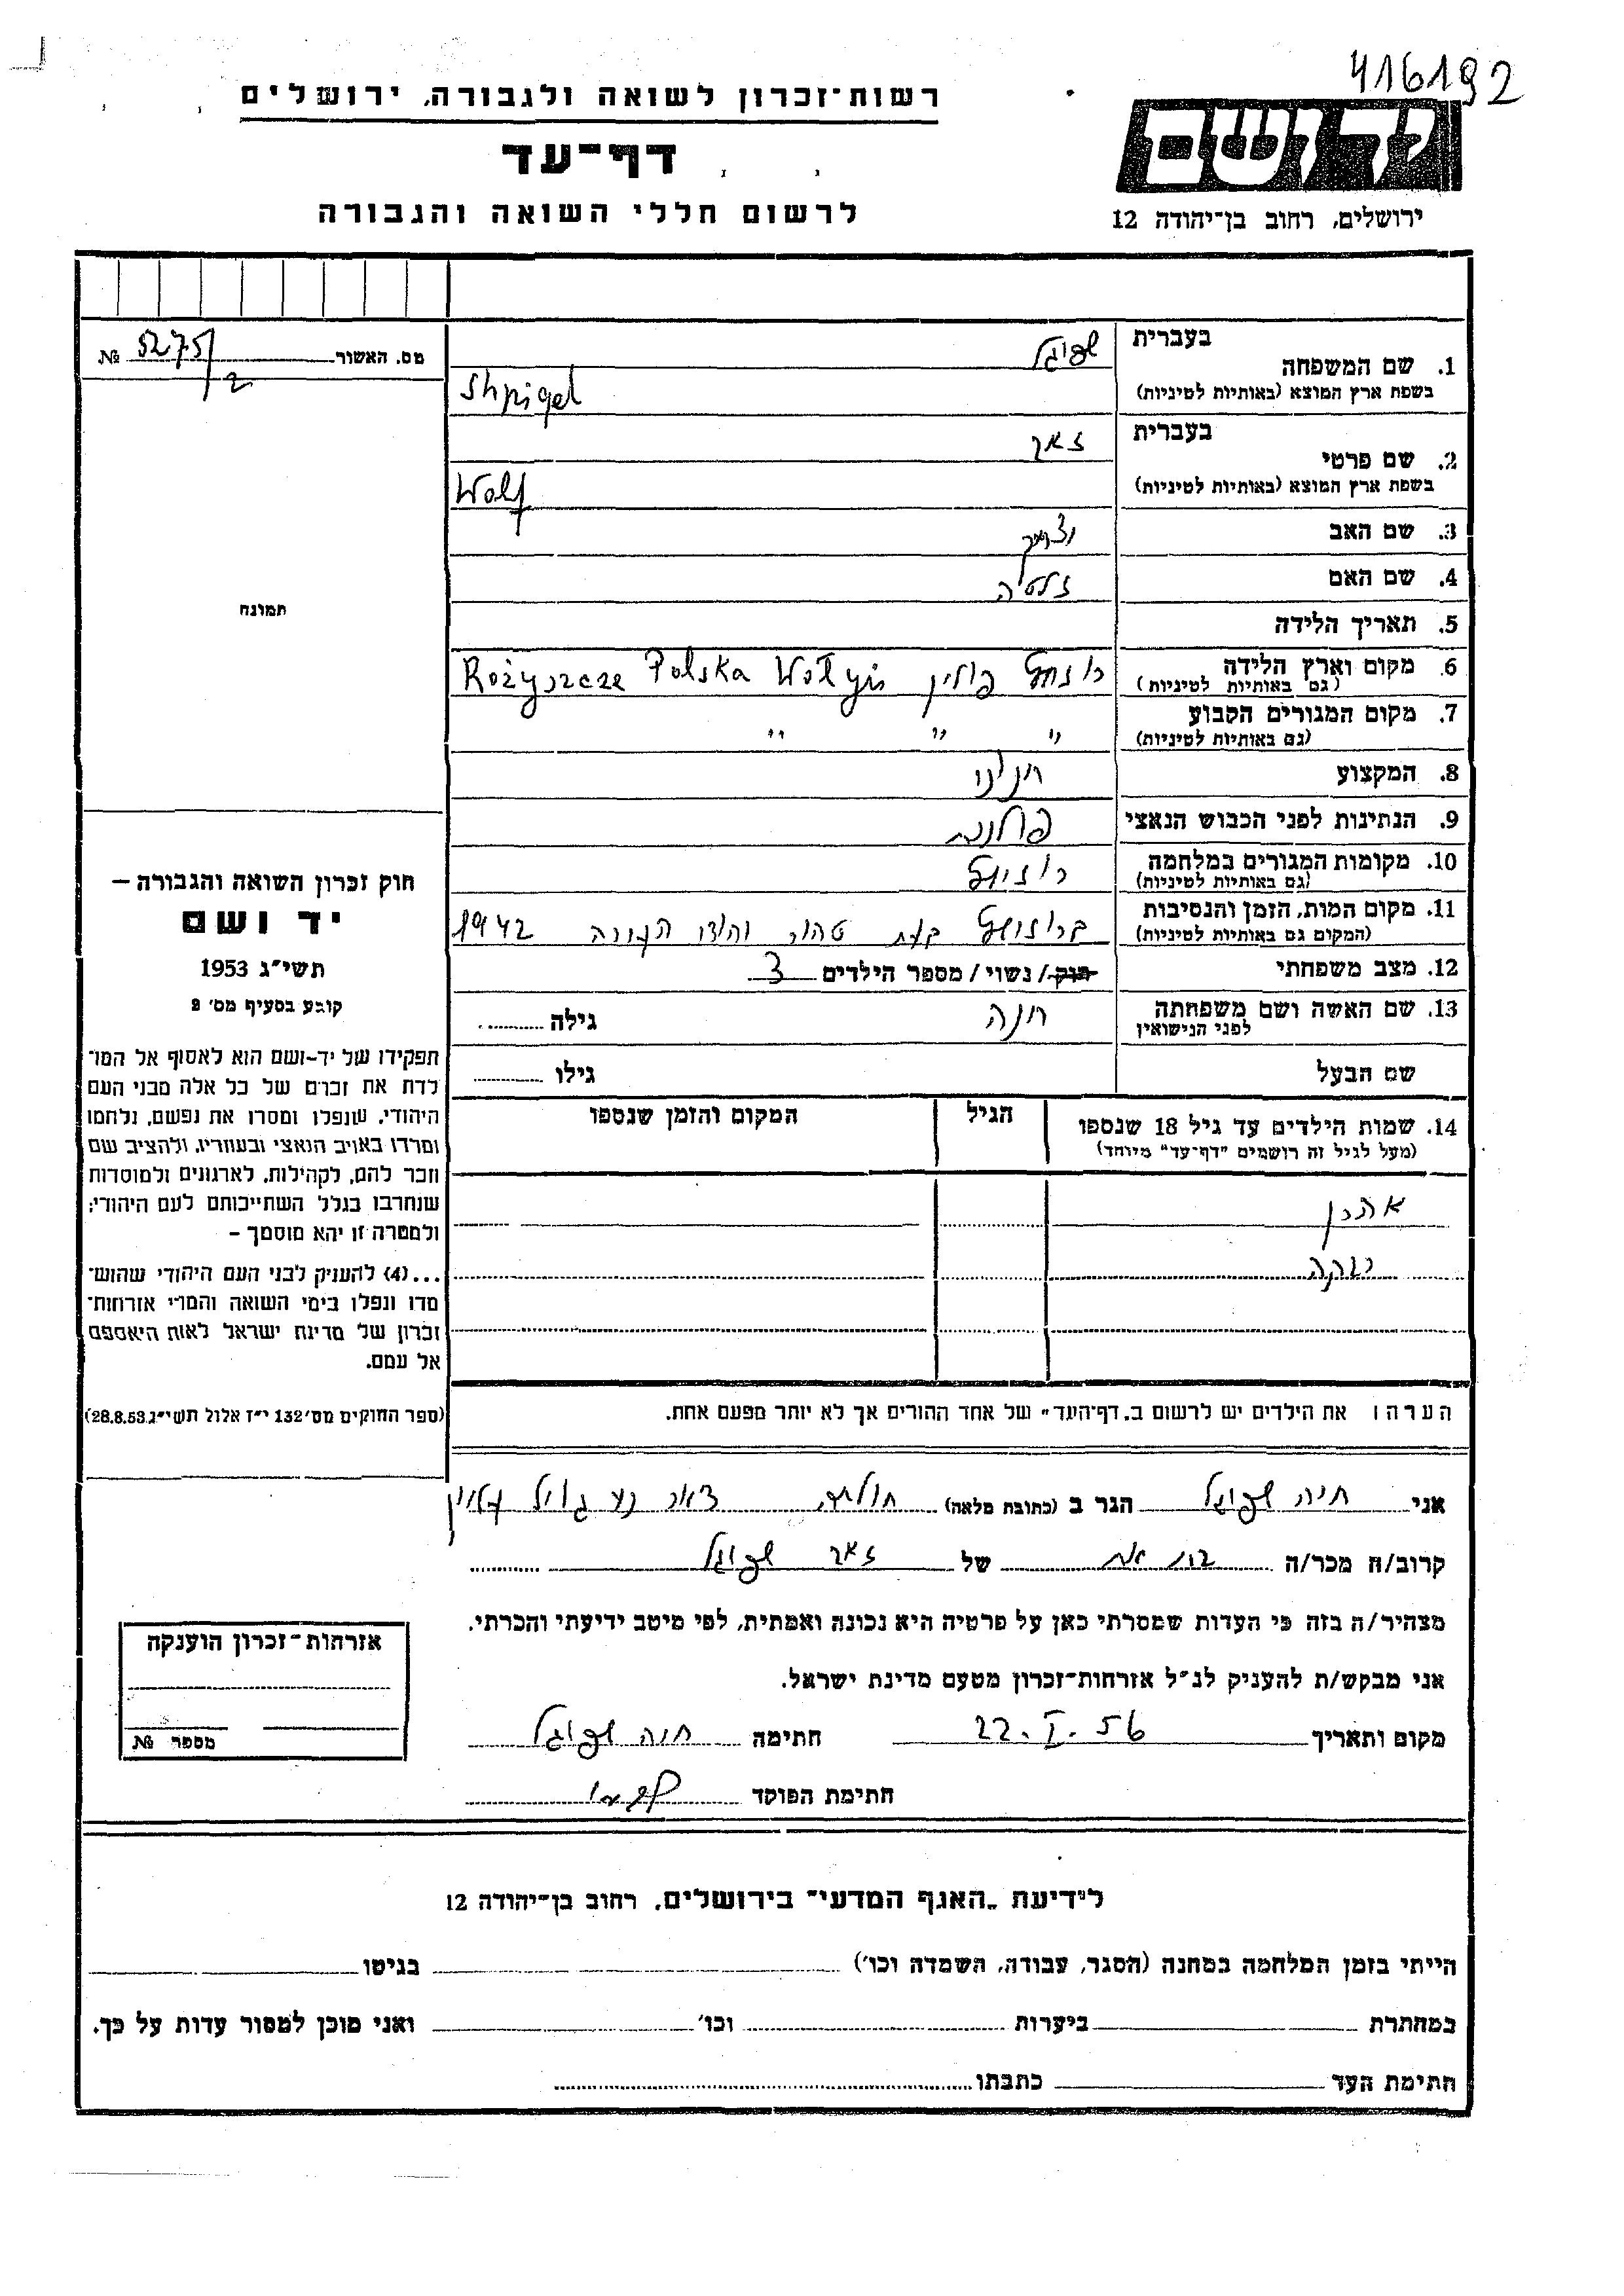 416192
רשות־זכרון לשואה ולגבורה, ירושלים
דף־עד
לרשום חללי השואה והגבורה
יד ושם
ירושלים, רחוב בן־יהודה 12
מס. האשור № 5275/2
תמונה
1. שם המשפחה בעברית שפיגל
בשפת ארץ המוצא (באותיות לטיניות) Shpigel
2. שם פרטי בעברית זאב
בשפת ארץ המוצא (באותיות לטיניות) Wolf
3. שם האב יצחק
4. שם האם זלטה
5. תאריך הלידה
6. מקום וארץ הלידה
(גם באותיות לטיניות) פולין Rożyszcze Polska Wołyń
7. מקום המגורים הקבוע
(גם באותיות לטיניות) " " "
8. המקצוע חנוני
9. הנתינות לפני הכבוש הנאצי פולנית
10. מקומות המגורים במלחמה
(גם באותיות לטיניות)
11. מקום המות, הזמן והנסיבות
(המקום גם באותיות לטיניות) 1942
12. מצב משפחתי רווק / נשוי / מספר הילדים 3
13. שם האשה ושם משפחתה
לפני הנישואין חנה גילה
שם הבעל גילו
14. שמות הילדים עד גיל 18 שנספו
(מעל לגיל זה רושמים "דף־עד" מיוחד)
הגיל
המקום והזמן שנספו
אהרן
רבקה
הערה: את הילדים יש לרשום ב„דף־העד" של אחד ההורים אך לא יותר מפעם אחת.
חוק זכרון השואה והגבורה –
יד ושם
תשי"ג 1953
קובע בסעיף מס' 2
תפקידו של יד־ושם הוא לאסוף אל המו־
לדת את זכרם של כל אלה מבני העם
היהודי, שנפלו ומסרו את נפשם, נלחמו
ומרדו באויב הנאצי ובעוזריו, ולהציב שם
וזכר להם, לקהילות, לארגונים ולמוסדות
שנחרבו בגלל השתייכותם לעם היהודי;
ולמטרה זו יהא מוסמך –
...(4) להעניק לבני העם היהודי שהוש־
מדו ונפלו בימי השואה והמרי אזרחות־
זכרון של מדינת ישראל לאות היאספם
אל עמם.
(ספר החוקים מס' 132 י"ז אלול תשי"ג 28.8.53)
אני חיה שפיגל הגר ב (כתובת מלאה) חולתה דואר נע גליל עליון
קרוב/ה מכר/ה בת אח של זאב שפיגל
מצהיר/ה בזה כי העדות שמסרתי כאן על פרטיה היא נכונה ואמתית, לפי מיטב ידיעתי והכרתי.
אני מבקש/ת להעניק לנ"ל אזרחות־זכרון מטעם מדינת ישראל.
מקום ותאריך 22.I.56 חתימה חיה שפיגל
חתימת הפוקד
אזרחות־זכרון הוענקה
מספר №
לידיעת „האגף המדעי" בירושלים, רחוב בן־יהודה 12
הייתי בזמן המלחמה במחנה (הסגר, עבודה, השמדה וכו') בגיטו
במחתרת ביערות וכו' ואני מוכן למסור עדות על כך.
חתימת העד כתבתו